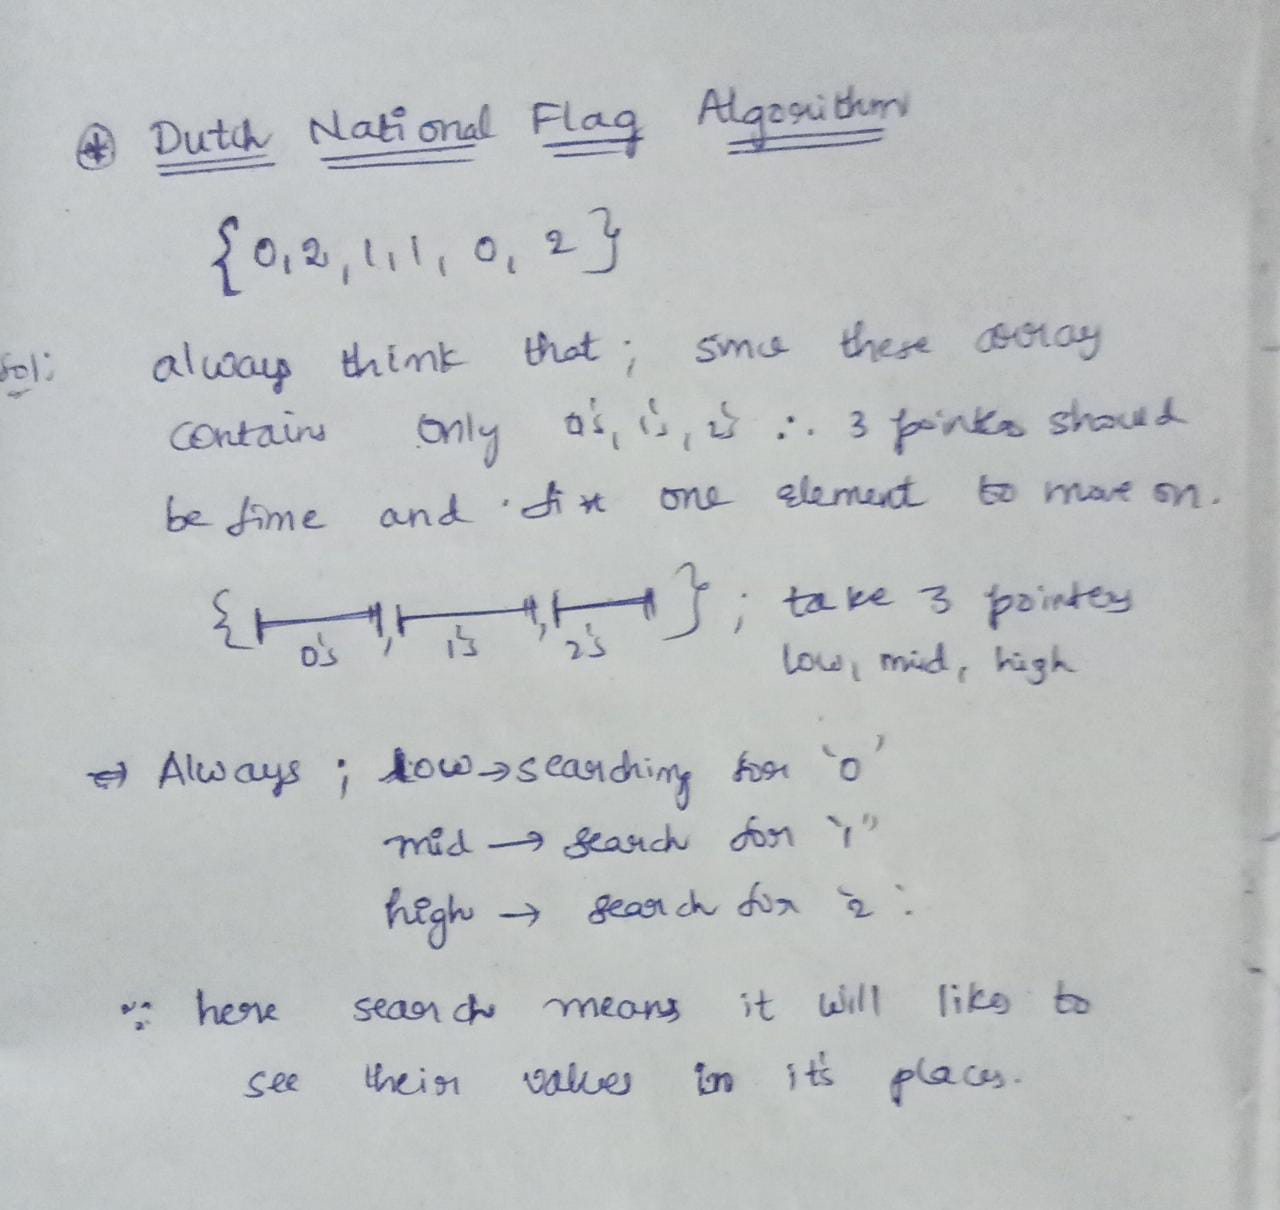 ⊛ Dutch National Flag Algorithm
{0,2,1,1,0,2}
Sol: always think that; since these array
contains only 0's, 1's, 2's ∴ 3 points should
be fime and fix one element to move on.
{ 0's, 1's, 2's }; take 3 pointers
low, mid, high
⇒ Always; low → searching for '0'
mid → search for '1'
high → search for '2'
∵ here search means it will likes to
see their values in it's places.